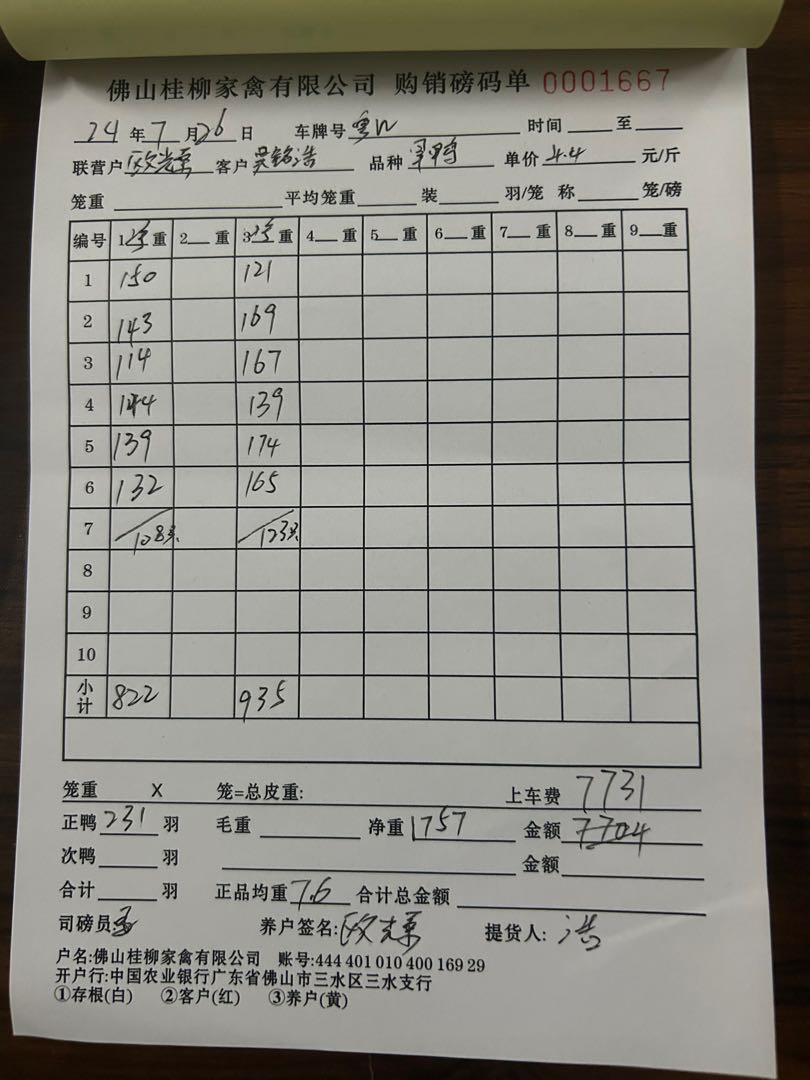 佛山桂柳家禽有限公司 购销磅码单 0001667
24 年 7 月 26 日 车牌号 粤W 时间 至
联营户 欧光荣 客户 吴铭浩 品种 鸭 单价 4.4 元/斤
笼重 平均笼重 装 羽/笼 称 笼/磅
编号 1 重 2 重 3 重 4 重 5 重 6 重 7 重 8 重 9 重
1 150 121
2 143 169
3 114 167
4 144 139
5 139 174
6 132 165
7 108只 123只
8
9
10
小计 822 935
笼重 X 笼=总皮重: 上车费 7731
正鸭 231 羽 毛重 净重 1757 金额 7704
次鸭 羽 金额
合计 羽 正品均重 7.6 合计总金额
司磅员 养户签名: 欧光荣 提货人: 浩
户名:佛山桂柳家禽有限公司 账号:444 401 010 400 169 29
开户行:中国农业银行广东省佛山市三水区三水支行
①存根(白) ②客户(红) ③养户(黄)